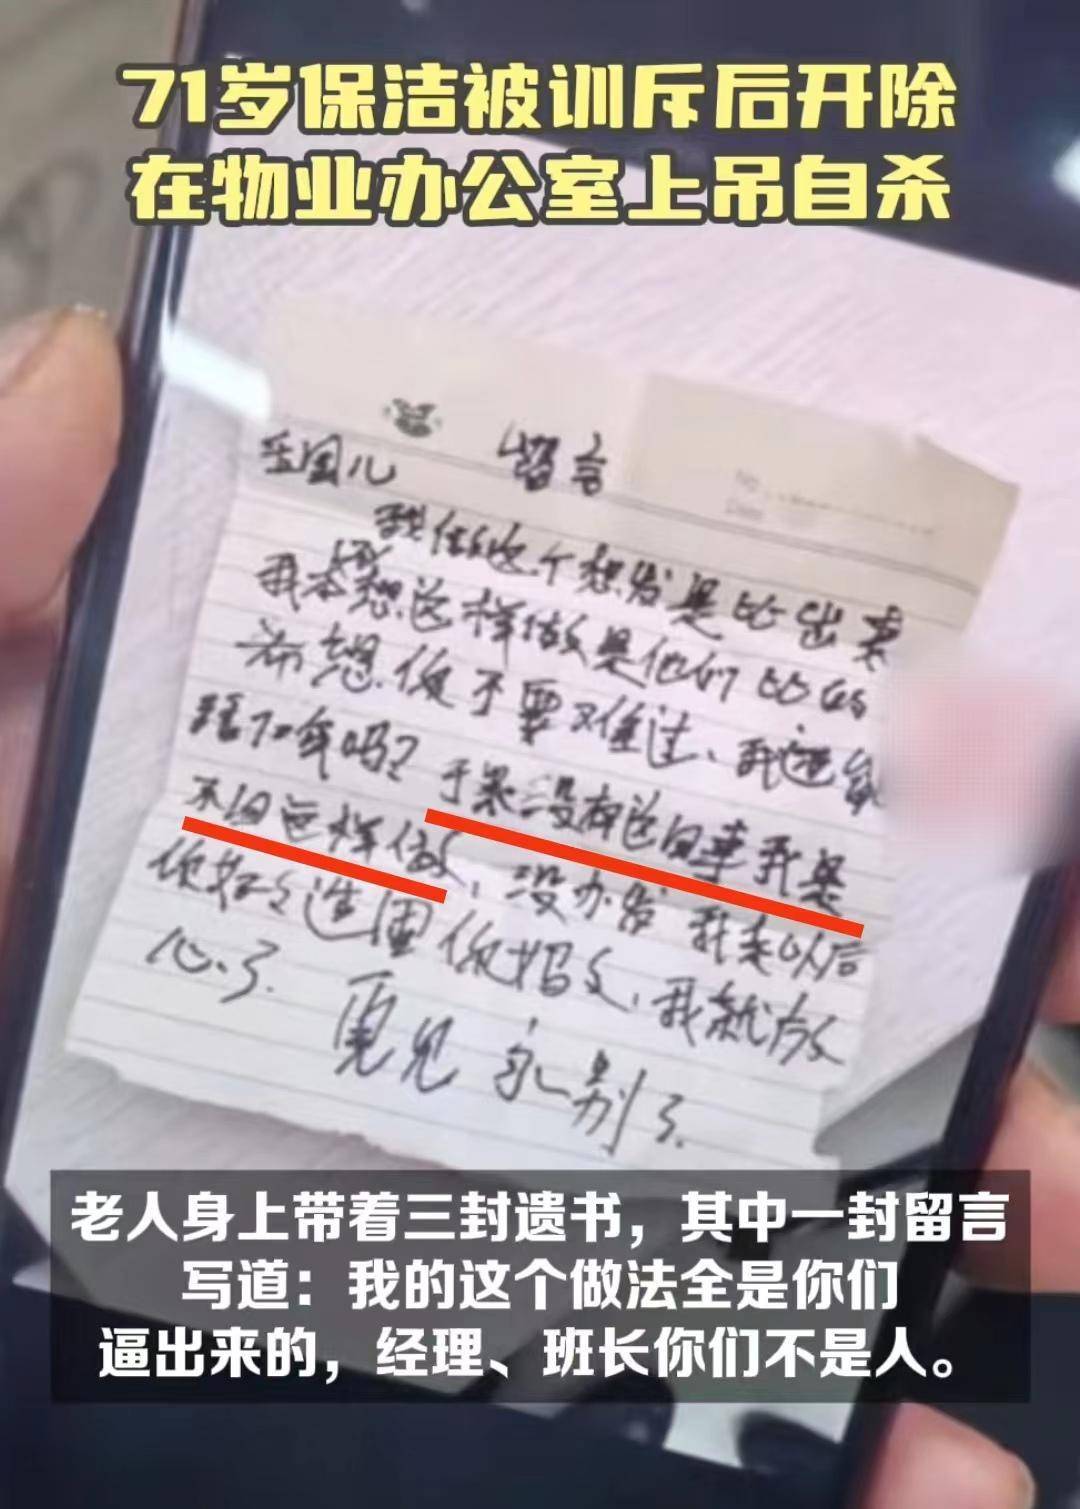 71岁保洁被训斥后开除
在物业办公室上吊自杀
留言
No
Date
我做这个想发是比出来
我不想这样做是他们比的
希想你不要难过、我这
吗？于果没有这回事我是
不回这样做、没办发 我走以后
你好了这国你妈了、我就放
心了. 再见 永别了.
老人身上带着三封遗书，其中一封留言
写道：我的这个做法全是你们
逼出来的，经理、班长你们不是人。